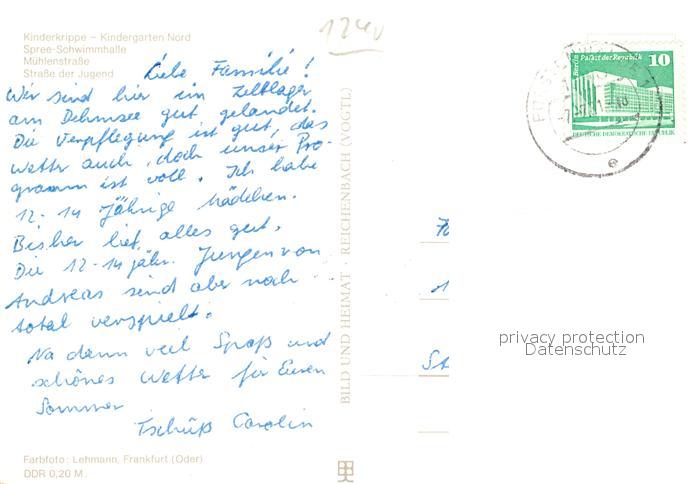 Kinderkrippe – Kindergarten Nord
Spree-Schwimmhalle
Mühlenstraße
Straße der Jugend
Liebe Familie!
Wir sind hier im Zeltlager
am Dehmsee gut gelandet.
Die Verpflegung ist gut, das
Wetter auch, doch unser Pro-
gramm ist voll. Ich habe
12-14 jährige Mädchen.
Bisher lief alles gut.
Die 12-14 jähr. Jungen von
Andreas sind aber noch
total verspielt.
Na dann viel Spaß und
schönes Wetter für Euren
Sommer
Tschüß Carolin
Farbfoto: Lehmann, Frankfurt (Oder)
DDR 0,20 M
BILD UND HEIMAT REICHENBACH (VOGTL)
Berlin Palast der Republik 10
DEUTSCHE DEMOKRATISCHE REPUBLIK
privacy protection
Datenschutz